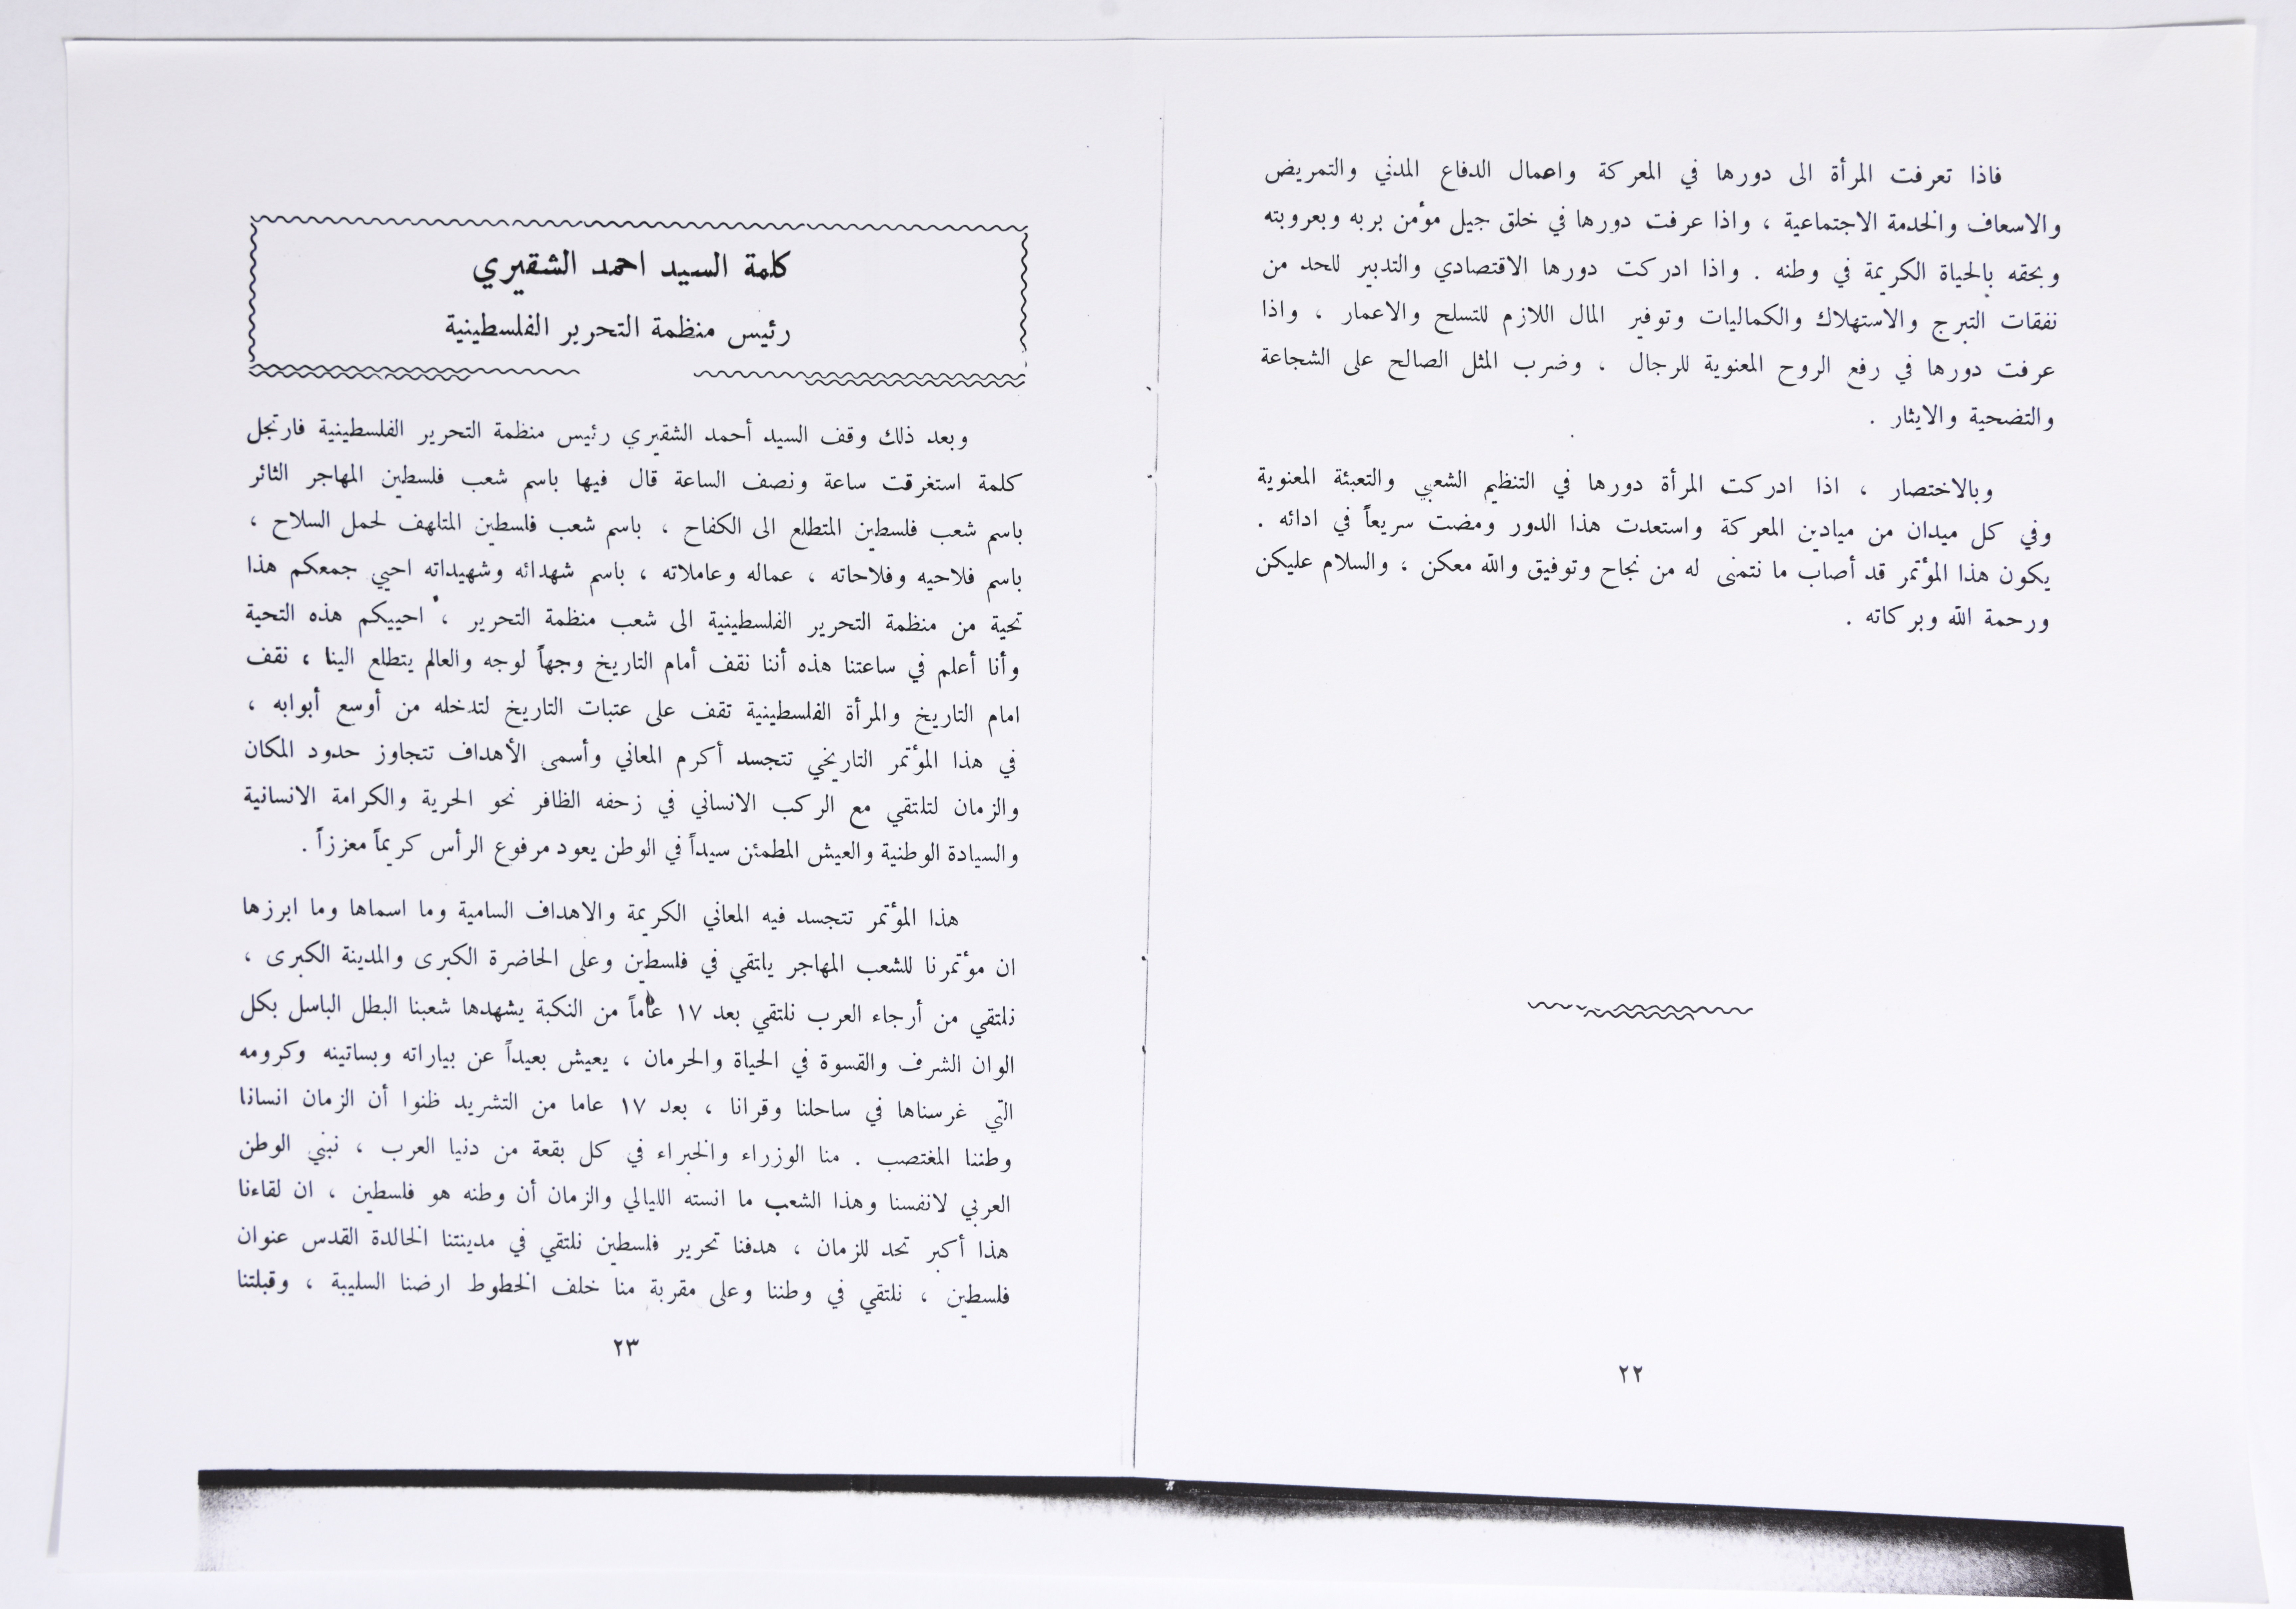 فاذا تعرفت المرأة الى دورها في المعركة واعمال الدفاع المدني والتمريض
والاسعاف والخدمة الاجتماعية ، واذا عرفت دورها في خلق جيل مؤمن بربه وبعروبته
وبحقه بالحياة الكريمة في وطنه . واذا ادركت دورها الاقتصادي والتدبير للحد من
نفقات التبرج والاستهلاك والكماليات وتوفير المال اللازم للتسلح والاعمار ، واذا
عرفت دورها في رفع الروح المعنوية للرجال ، وضرب المثل الصالح على الشجاعة
والتضحية والايثار .
وبالاختصار ، اذا ادركت المرأة دورها في التنظيم الشعبي والتعبئة المعنوية
وفي كل ميدان من ميادين المعركة واستعدت هذا الدور ومضت سريعاً في ادائه .
يكون هذا المؤتمر قد أصاب ما نتمنى له من نجاح وتوفيق والله معكن ، والسلام عليكن
ورحمة الله وبركاته .
٢٢
كلمة السيد احمد الشقيري
رئيس منظمة التحرير الفلسطينية
وبعد ذلك وقف السيد أحمد الشقيري رئيس منظمة التحرير الفلسطينية فارتجل
كلمة استغرقت ساعة ونصف الساعة قال فيها باسم شعب فلسطين المهاجر الثائر
باسم شعب فلسطين المتطلع الى الكفاح ، باسم شعب فلسطين المتلهف لحمل السلاح ،
باسم فلاحيه وفلاحاته ، عماله وعاملاته ، باسم شهدائه وشهيداته احيي جمعكم هذا
تحية من منظمة التحرير الفلسطينية الى شعب منظمة التحرير ، احييكم هذه التحية
وأنا أعلم في ساعتنا هذه أننا نقف أمام التاريخ وجهاً لوجه والعالم يتطلع الينا ، نقف
امام التاريخ والمرأة الفلسطينية تقف على عتبات التاريخ لتدخله من أوسع أبوابه ،
في هذا المؤتمر التاريخي تتجسد أكرم المعاني وأسمى الأهداف تتجاوز حدود المكان
والزمان لتلتقي مع الركب الانساني في زحفه الظافر نحو الحرية والكرامة الانسانية
والسيادة الوطنية والعيش المطمئن سيداً في الوطن يعود مرفوع الرأس كريماً معززاً .
هذا المؤتمر تتجسد فيه المعاني الكريمة والاهداف السامية وما اسماها وما ابرزها
ان مؤتمرنا للشعب المهاجر يلتقي في فلسطين وعلى الحاضرة الكبرى والمدينة الكبرى ،
نلتقي من أرجاء العرب نلتقي بعد ١٧ عاماً من النكبة يشهدها شعبنا البطل الباسل بكل
الوان الشرف والقسوة في الحياة والحرمان ، يعيش بعيداً عن بياراته وبساتينه وكرومه
التي غرسناها في ساحلنا وقرانا ، بعد ١٧ عاما من التشريد ظنوا أن الزمان انسانا
وطننا المغتصب . منا الوزراء والخبراء في كل بقعة من دنيا العرب ، نبني الوطن
العربي لانفسنا وهذا الشعب ما انسته الليالي والزمان أن وطنه هو فلسطين ، ان لقاءنا
هذا أكبر تحد للزمان ، هدفنا تحرير فلسطين نلتقي في مدينتنا الخالدة القدس عنوان
فلسطين ، نلتقي في وطننا وعلى مقربة منا خلف الخطوط ارضنا السليبة ، وقبلتنا
٢٣